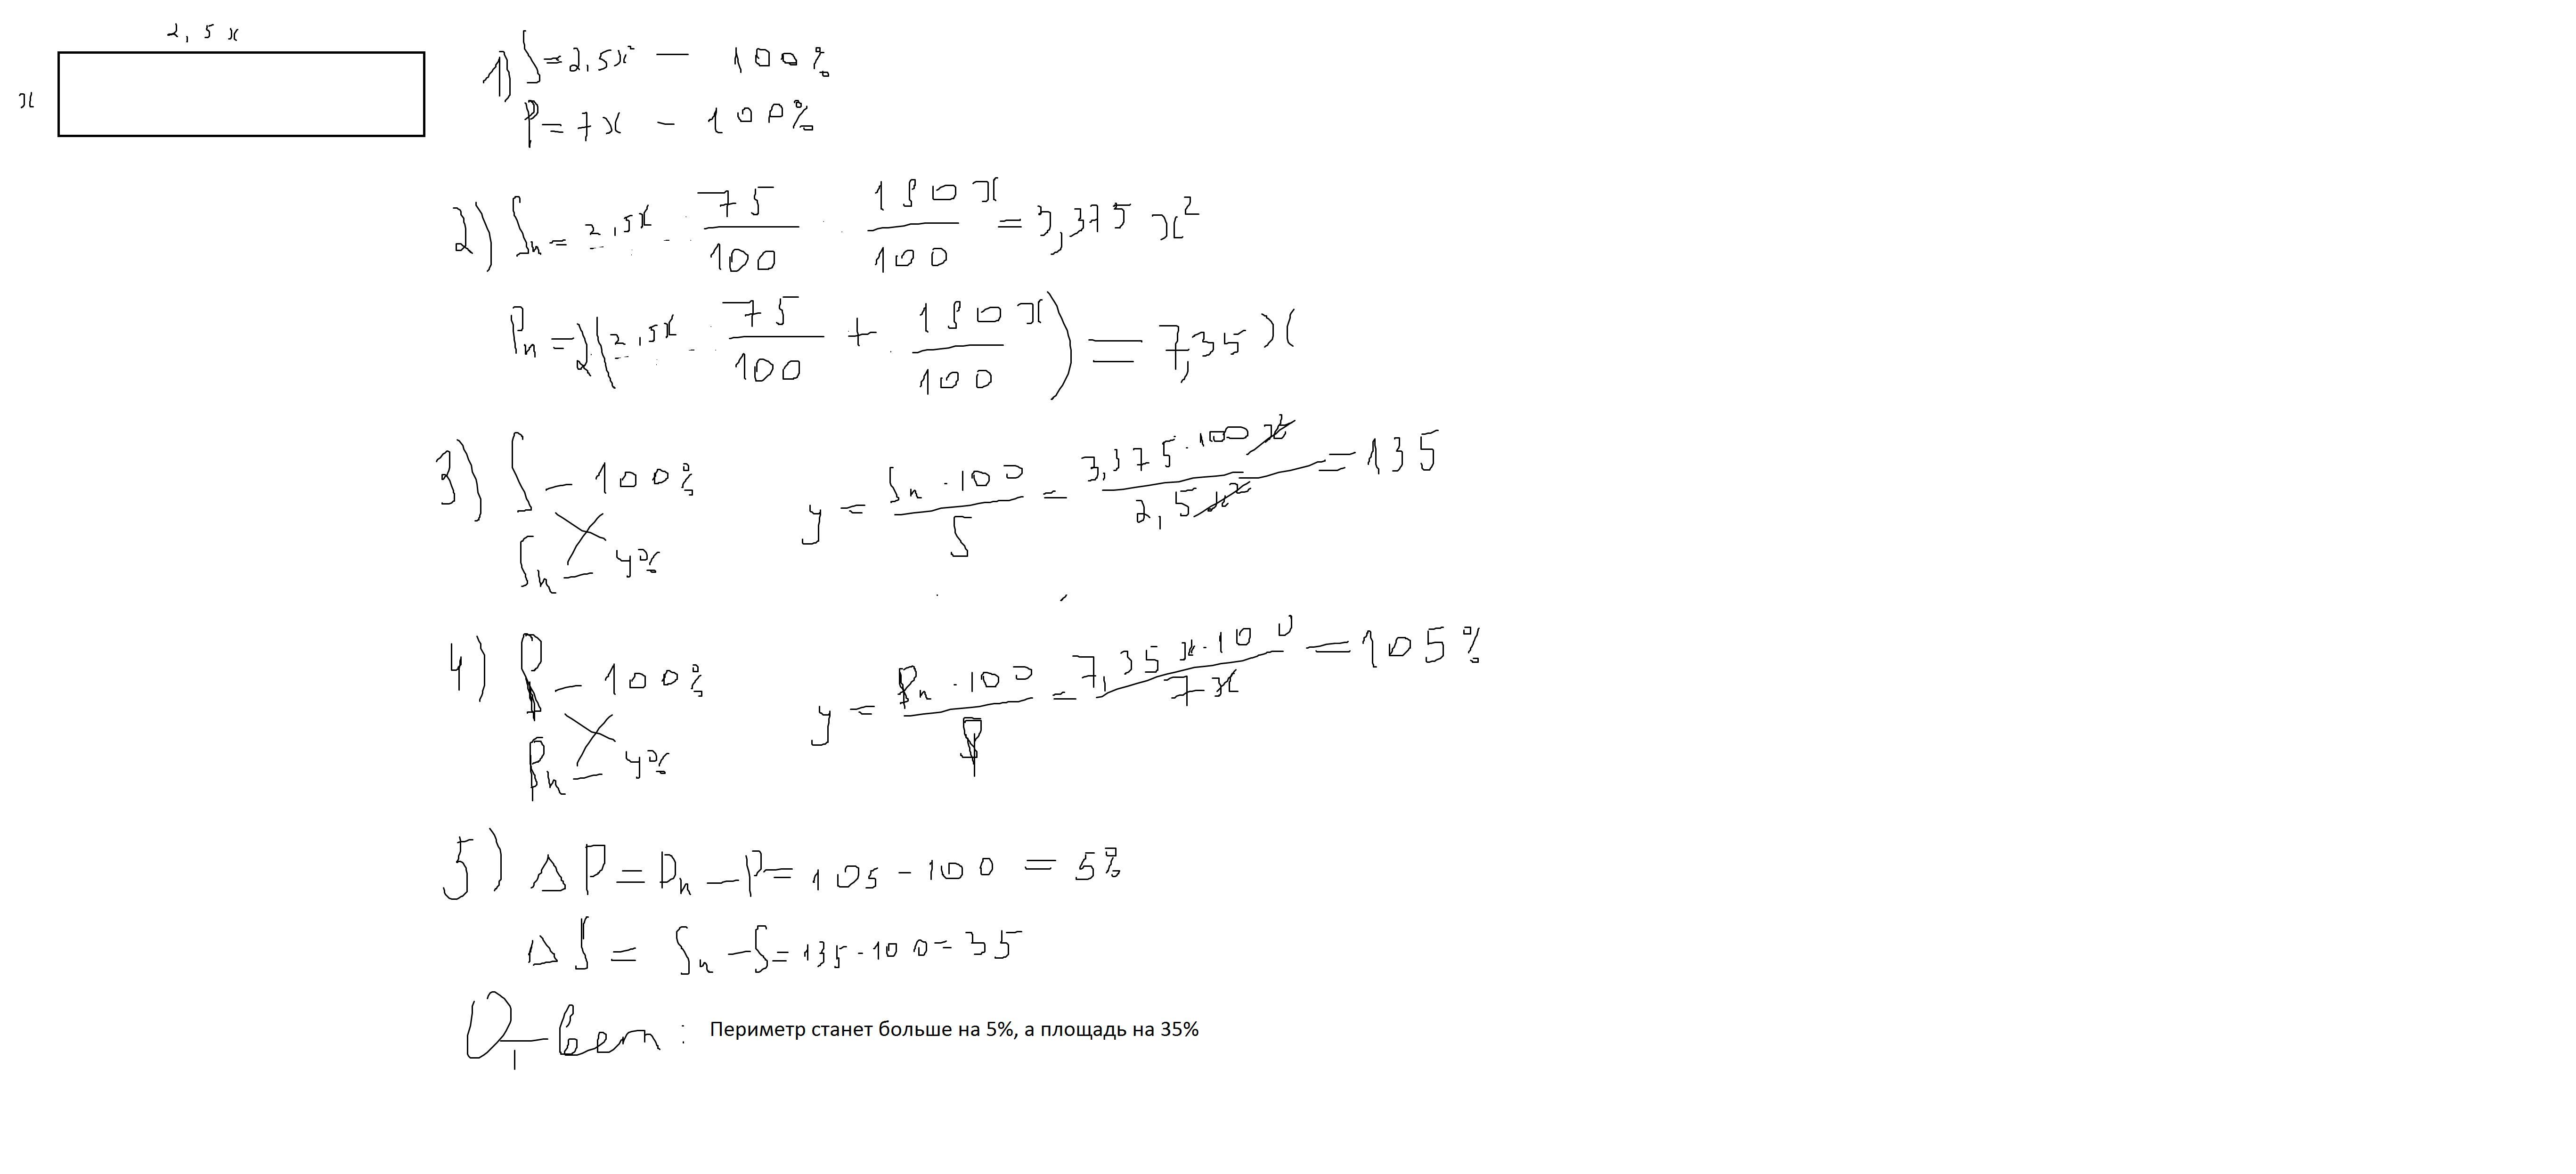 2,5x
x
1) S=2,5x² - 100%
P=7x - 100%
2) Sн = 2,5x · 75/100 · 180x/100 = 3,375 x²
Pн = 2(2,5x · 75/100 + 180x/100) = 7,35x
3) S - 100%
Sн - y%
y = Sн · 100/S = 3,375 · 100x²/2,5x² = 135
4) P - 100%
Pн - y%
y = Pн · 100/P = 7,35x · 100/7x = 105%
5) ΔP = Pн - P = 105 - 100 = 5%
ΔS = Sн - S = 135 - 100 = 35
Ответ: Периметр станет больше на 5%, а площадь на 35%